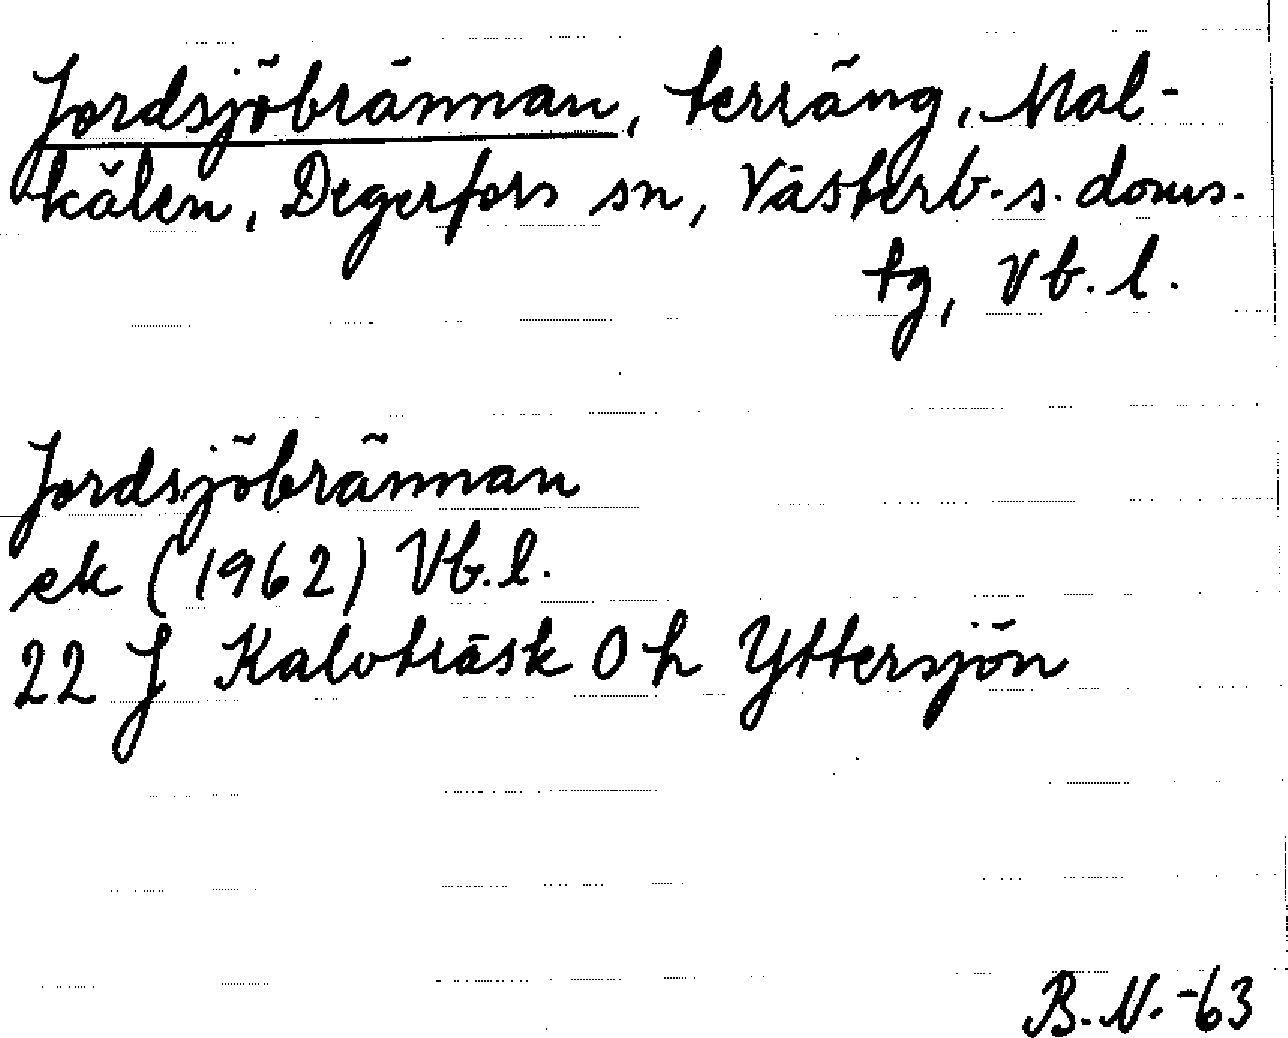 Jordsjöbrännan, terräng, Mal-
kålen, Degerfors sn, Västerb. s. doms.
tg, Vb. l.
Jordsjöbrännan
ek (1962) Vb. l.
22 J Kalvträsk 0 h Yttersjön
B. N. -63